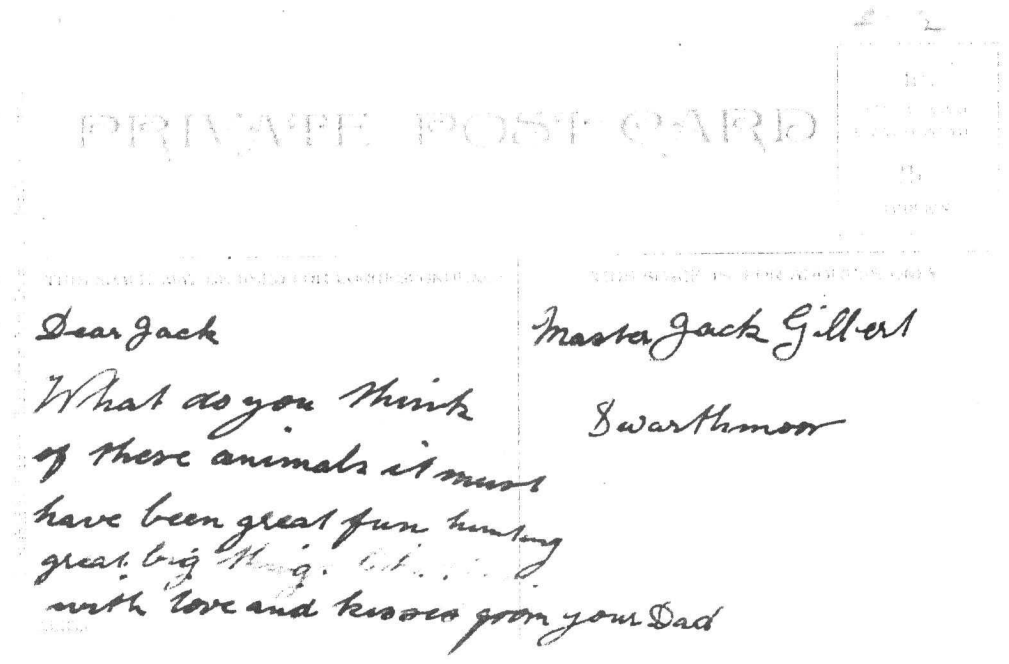 PRIVATE POST CARD
Dear Jack
What do you think
of these animals it must
have been great fun hunting
great big things
with love and kisses from your Dad
Master Jack Gilbert
Swarthmoor